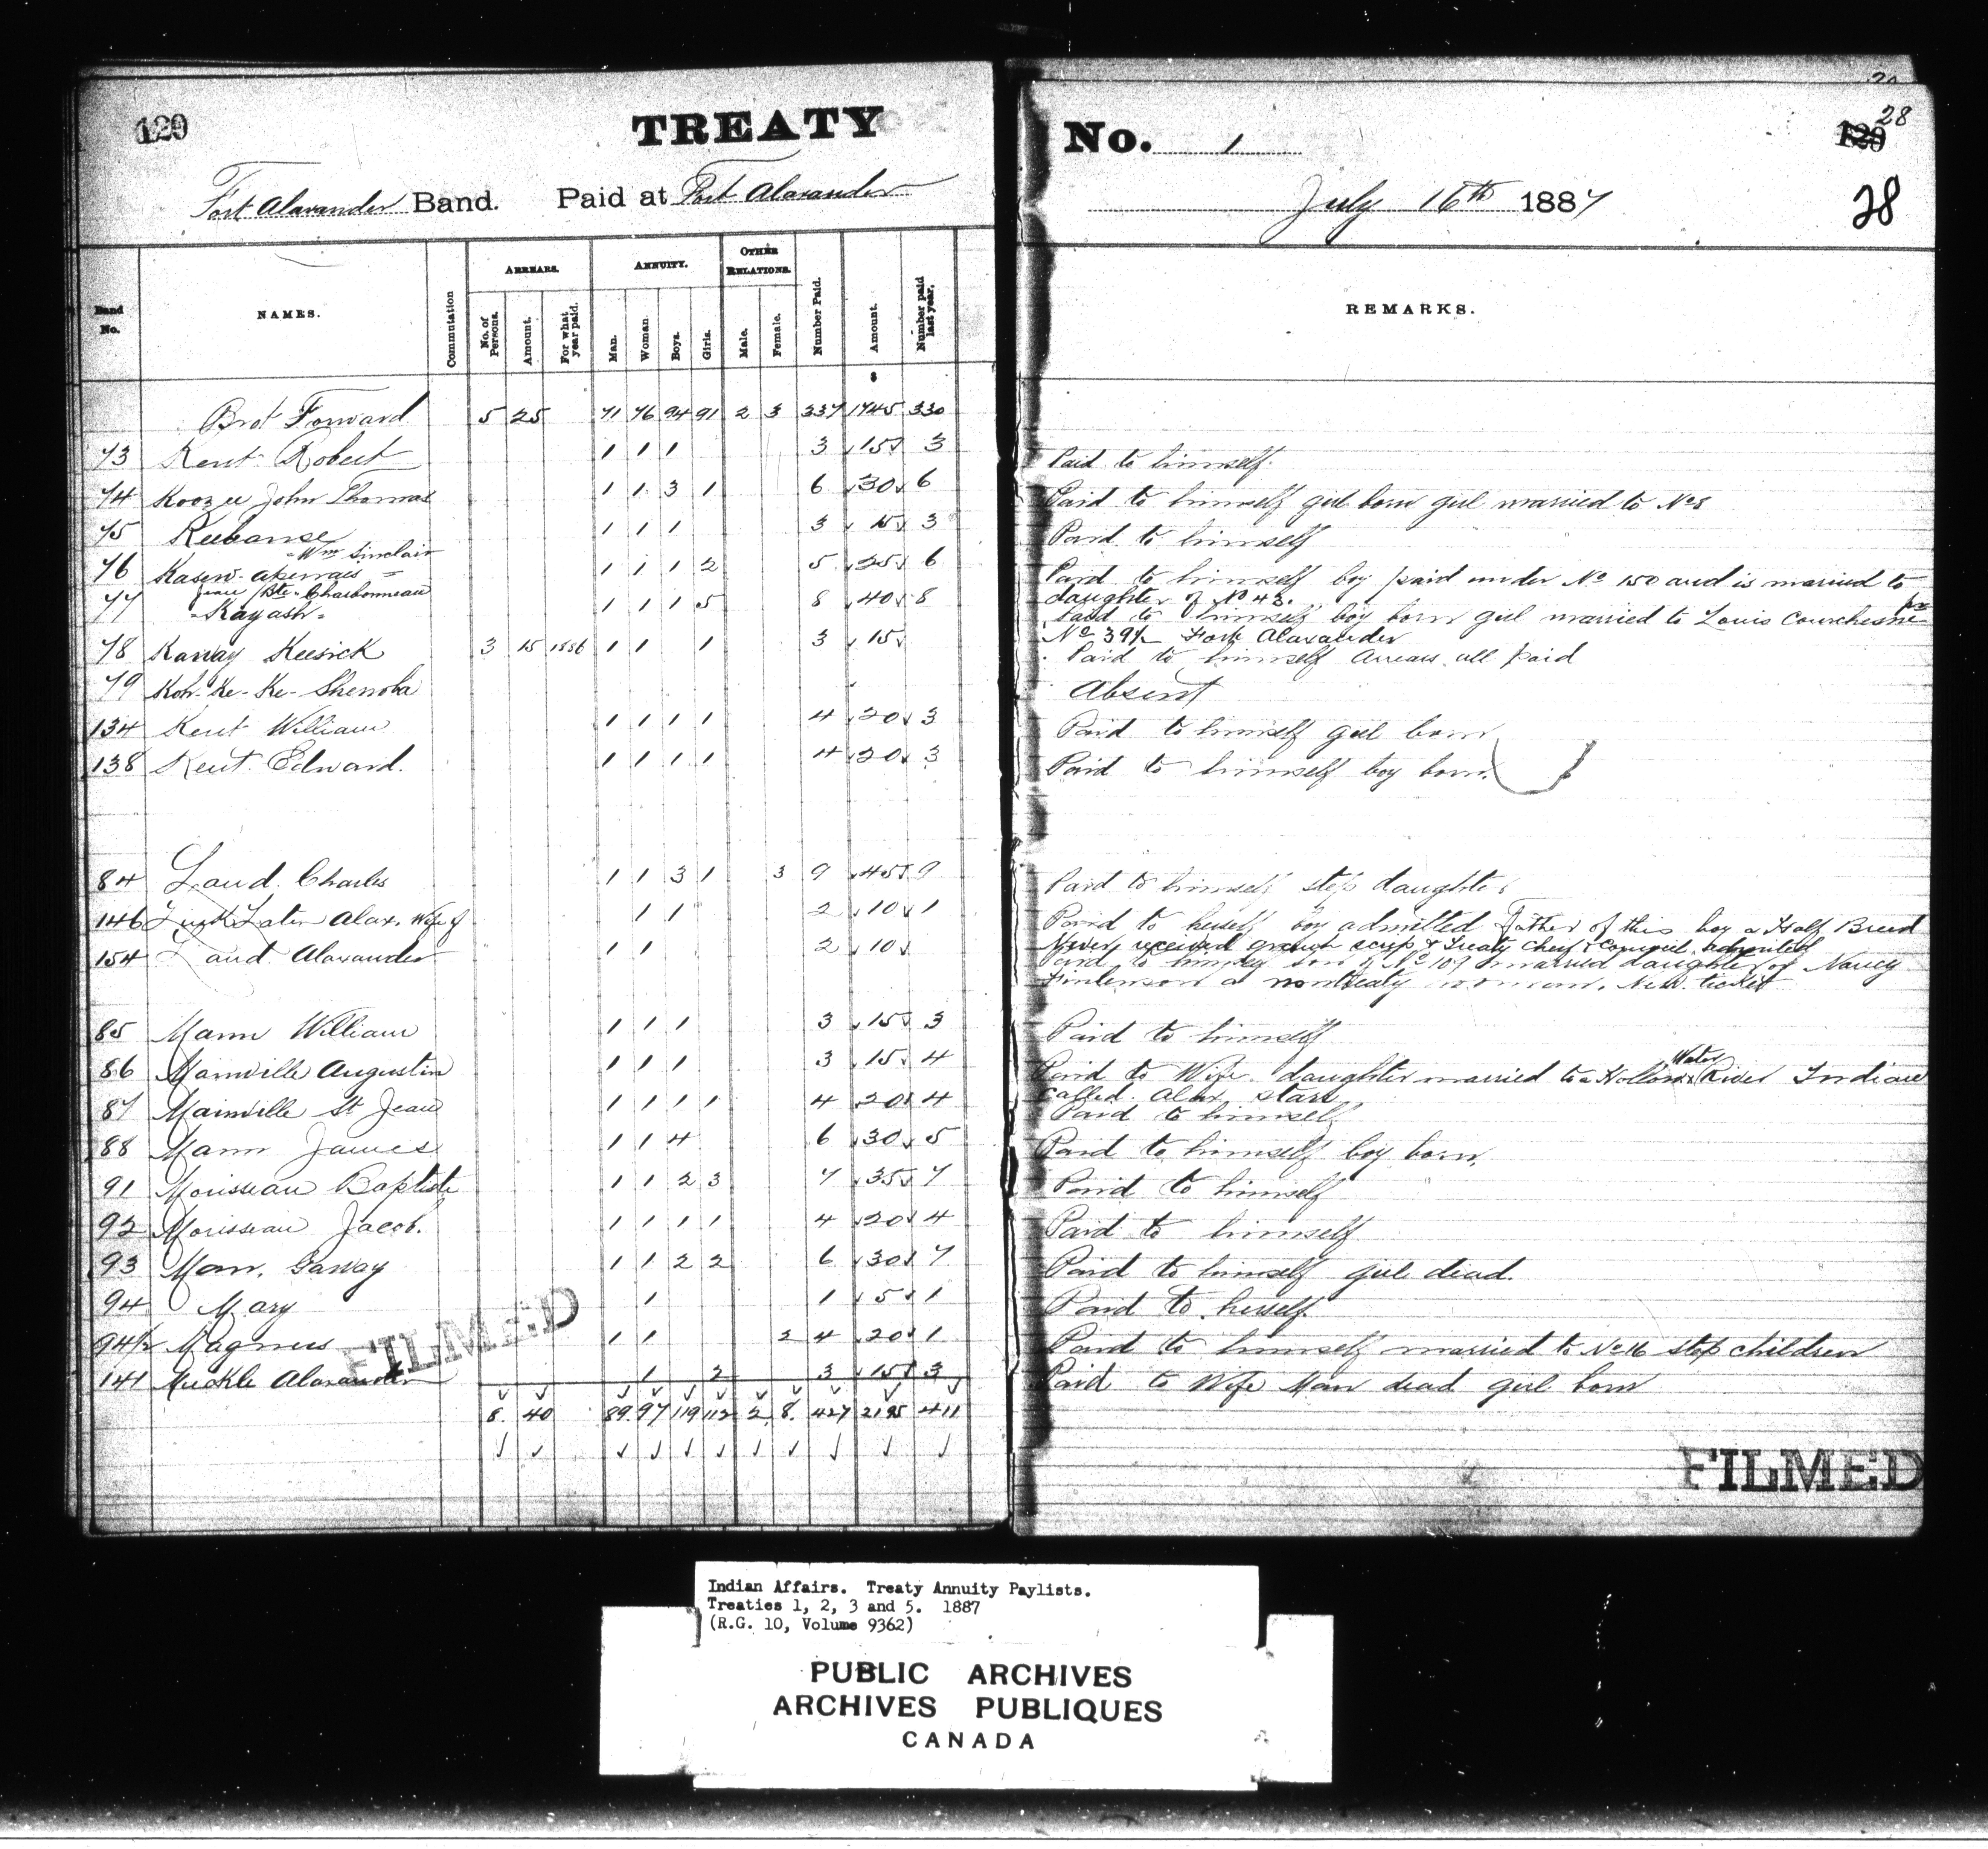 120
TREATY
No. 1
28
120
28
Fort Alaxander Band. Paid at Fort Alaxander
July 16th 1887
Band No.
NAMES.
Commutation
ARREARS.
No. of Persons.
Amount.
For what year paid.
ANNUITY.
Man.
Woman
Boys.
Girls.
OTHER RELATIONS.
Male.
Female.
Number Paid.
Amount.
Number paid last year.
REMARKS.
$
Brot Forward 5 25 71 76 94 91 2 3 337 1745 330
73 Kent Robert 1 1 1 3 15 3 Paid to himself.
74 Koozee John Thomas 1 1 3 1 6 30 6 Paid to himself girl born girl married to No 8
75 Keebanse 1 1 1 3 15 3 Paid to himself
Wm Sinclair
76 1 1 1 2 5 25 6 Paid to himself boy paid under No 150 and is married to
daughter of No 43.
Jean Bte. Charbonneau
77 Kayash 1 1 1 5 8 40 8 Paid to himself boy born girl married to Louis Courchesne
No 39½ Fort Alaxander
78 Kaway Keesick 3 15 1886 1 1 1 3 15 Paid to himself Arrears all paid
79 Koh-Ke-Ke-Shenoba Absent
134 Kent William 1 1 1 1 4 20 3 Paid to himself girl born
138 Kent Edward. 1 1 1 1 4 20 3 Paid to himself boy born.
84 Laud Charles 1 1 3 1 3 9 45 9 Paid to himself step daughters
146 Alax. Wife of 1 1 2 10 1 Paid to herself boy admitted Father of this boy a Half Breed
Never received scrip & Treaty Chief & Council admitted
154 Laud Alaxander 1 1 2 10 Paid to himself son of No 109 married daughter of Nancy
Finlenson a nontreaty woman. New ticket
85 Mann William 1 1 1 3 15 3 Paid to himself
86 Mainville Augustin 1 1 1 3 15 4 Paid to Wife daughter married to a Hollow Water River Indian
Called Alax Stars
87 Mainville St Jean 1 1 1 1 4 20 4 Paid to himself
88 Mann James 1 1 4 6 30 5 Paid to himself boy born.
91 Morisseau Baptiste 1 1 2 3 7 35 7 Paid to himself
92 Morisseau Jacob. 1 1 1 1 4 20 4 Paid to himself
93 Man. Gaway 1 1 2 2 6 30 7 Paid to himself girl dead.
94 Mary 1 1 5 1 Paid to herself.
94½ Magnus 1 1 2 4 20 1 Paid to himself married to No 16 step children
141 Muckle Alaxander 1 2 3 15 3 Paid to Wife Man dead girl born
8. 40 89 97 119 112 2 8. 427 2195 411
FILMED
FILMED
Indian Affairs. Treaty Annuity Paylists.
Treaties 1, 2, 3 and 5. 1887
(R.G. 10, Volume 9362)
PUBLIC ARCHIVES
ARCHIVES PUBLIQUES
CANADA